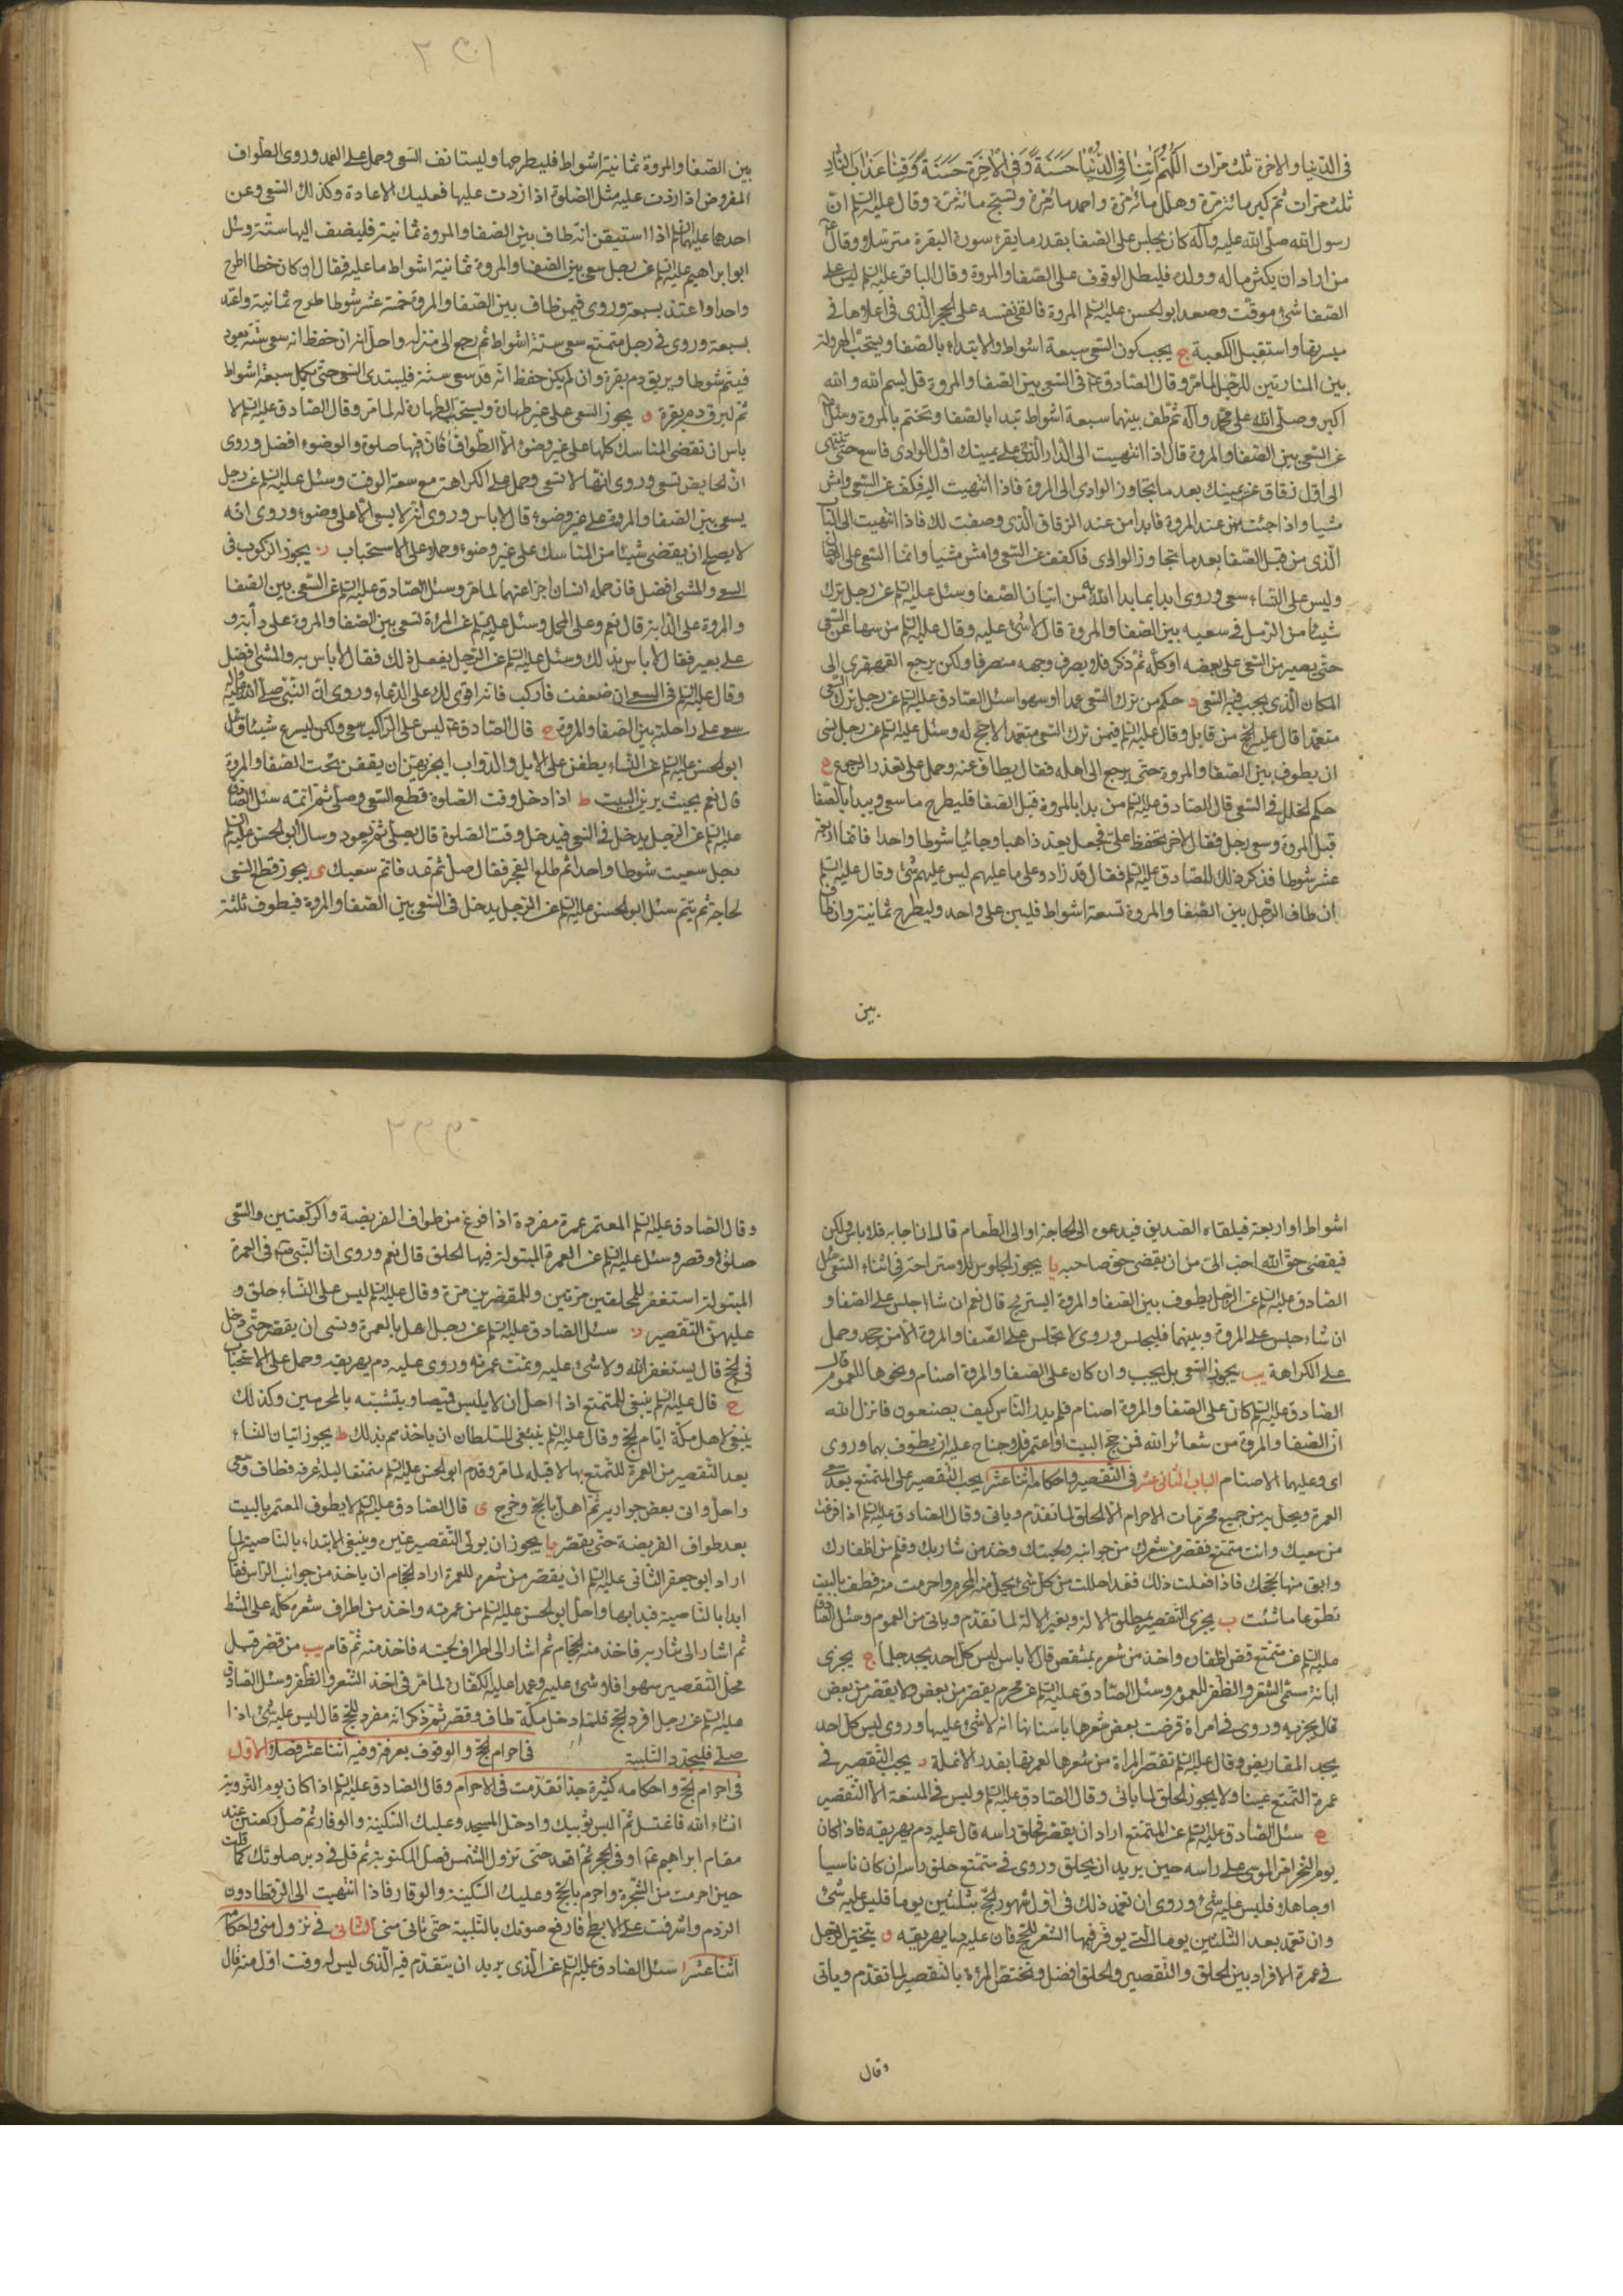 في الدنيا والاخرة ثلث مرات اللهم اتنا في الدنيا حسنة وفي الاخرة حسنة وقنا عذاب النار
ثلث مرات ثم كبر مائة مرة وهلل مائة مرة واحمد مائة مرة وتسبح مائة مرة وقال عليه السلم ان
رسول الله صلى الله عليه وآله كان يجلس على الصفا بقدر ما يقرء سورة البقرة مترسلا وقال
من اراد ان يكثر ماله وولده فليطل الوقوف على الصفا والمروة وقال الباقر عليه السلم ليس على
الصفا شئ موقت وصعد ابو الحسن عليه السلم المروة فالقى نفسه على الحجر الذي في اعلاها في
ميسرتها واستقبل الكعبة ج يجب كون السعي سبعة اشواط والابتداء بالصفا ويستحب الهرولة
بين المنارتين للرجل لما مر وقال الصادق في السعي بين الصفا والمروة قل بسم الله والله
اكبر وصلى الله على محمد وآله ثم طف بينهما سبعة اشواط تبدا بالصفا وتختم بالمروة وسئل
عن السعي بين الصفا والمروة قال اذا انتهيت الى الدار التي على يمينك اول الوادي فاسع حتى تنتهي
الى اول زقاق عن يمينك بعد ما تجاوز الوادي الى المروة فاذا انتهيت اليه فكف عن السعي وامش
مشيا واذا جئت من عند المروة فابدا من عند الزقاق الذي وصفت لك فاذا انتهيت الى الباب
الذي من قبل الصفا بعد ما تجاوز الوادي فاكفف عن السعي وامش مشيا وانما السعي على الرجال
وليس على النساء سعي وروى ابدا بما بدا الله به من اتيان الصفا وسئل عليه السلم عن رجل ترك
شيئا من الرمل في سعيه بين الصفا والمروة قال لا شئ عليه وقال عليه السلم من سها عن السعي
حتى يصير من السعي على بعضه او كله ثم ذكر فلا يصرف وجهه منصرفا ولكن يرجع القهقرى الى
المكان الذي يجب فيه السعي د حكم من ترك السعي عمدا او سهوا سئل الصادق عليه السلم عن رجل ترك السعي
متعمدا قال عليه الحج من قابل وقال عليه السلم فيمن ترك السعي متعمدا لا حج له وسئل عليه السلم عن رجل نسي
ان يطوف بين الصفا والمروة حتى يرجع الى اهله فقال يطاف عنه وحمل على تعذر الرجوع ه
حكم الخلل في السعي قال الصادق عليه السلم من بدا بالمروة قبل الصفا فليطرح ما سعى ويبدا بالصفا
قبل المروة وسعى رجل فقال لاخر تحفظ علي فجعل يعد ذاهبا وجائيا شوطا واحدا فاتما اربعة
عشر شوطا فذكر ذلك للصادق عليه السلم فقال قد زادوا على ما عليهم ليس عليهم شئ وقال عليه السلم
ان طاف الرجل بين الصفا والمروة تسعة اشواط فليبن على واحد وليطرح ثمانية وان طاف
بين
بين الصفا والمروة ثمانية اشواط فليطرحها وليستانف السعي وحمل على العمد وروى الطواف
المفروض اذا زدت عليه مثل الصلوة اذا زدت عليها فعليك الاعادة وكذلك السعي وعن
احدهما عليهما السلم اذا استيقن انه طاف بين الصفا والمروة ثمانية فليضف اليها ستة وسئل
ابو ابراهيم عليه السلم عن رجل سعى بين الصفا والمروة ثمانية اشواط ما عليه فقال ان كان خطا اطرح
واحدا واعتد بسبعة وروى فيمن طاف بين الصفا والمروة خمسة عشر شوطا طرح ثمانية واعتد
بسبعة وروى في رجل متمتع سعى ستة اشواط ثم رجع الى منزله واحل انه ان حفظ انه سعى ستة يعود
فيتم شوطا ويريق دم بقرة وان لم يكن حفظ انه قد سعى ستة فليبتدى السعي حتى يكمل سبعة اشواط
ثم ليرق دم بقرة و يجوز السعي على غير طهارة ويستحب الطهارة له لما مر وقال الصادق عليه السلم لا
باس ان تقضي المناسك كلها على غير وضوء الا الطواف فان فيها صلوة والوضوء افضل وروى
ان الحايض تسعى وروى انها لا تسعى وحمل على الكراهة مع سعة الوقت وسئل عليه السلم عن رجل
يسعى بين الصفا والمروة على غير وضوء قال لا باس وروى انه لا يسعى الا على وضوء وروى انه
لا يصلح ان يقضي شيئا من المناسك على غير وضوء وحملا على الاستحباب ز يجوز الركوب في
السعي والمشي افضل فان حمله انسان اجزا عنهما لما مر وسئل الصادق عليه السلم عن السعي بين الصفا
والمروة على الدابة قال نعم وعلى المحمل وسئل عليه السلم عن المرئة تسعى بين الصفا والمروة على دابة و
على بعير فقال لا باس بذلك وسئل عليه السلم عن الرجل يفعل ذلك فقال لا باس به والمشي افضل
وقال عليه السلم في السعي ان ضعفت فاركب فانه اقوى لك على الدعاء وروى ان النبي صلى الله عليه وآله
سعى على راحلته بين الصفا والمروة ح قال الصادق ليس على الراكب سعي ولكن ليسرع شيئا وسئل
ابو الحسن عليه السلم عن النساء يطفن على الابل والدواب ايجزيهن ان يقفن تحت الصفا والمروة
قال نعم بحيث يرين البيت ط اذا دخل وقت الصلوة قطع السعي وصلى ثم اتمه سئل الصادق
عليه السلم عن الرجل يدخل في السعي فيدخل وقت الصلوة قال يصلي ثم يعود وسال ابو الحسن عليه السلم
رجل سعيت شوطا واحدا ثم طلع الفجر فقال صل ثم عد فاتم سعيك ى يجوز قطع السعي
لحاجة ثم يتم سئل ابو الحسن عليه السلم عن الرجل يدخل في السعي بين الصفا والمروة فيطوف ثلثة
اشواط او اربعة فيلقاه الصديق فيدعوه الى الحاجة او الى الطعام قال ان اجابه فلا باس ولكن
فيقضي حق الله احب الي من ان يقضي حق صاحبه يا يجوز الجلوس للاستراحة في اثناء السعي سئل
الصادق عليه السلم عن الرجل يطوف بين الصفا والمروة ايستريح قال نعم ان شاء جلس على الصفا و
ان شاء جلس على المروة وبينهما فليجلس وروى لا تجلس على الصفا والمروة الا من جهد وحمل
على الكراهة يب يجوز السعي بل يجب وان كان على الصفا والمروة اصنام ونحوها للعموم قال
الصادق عليه السلم كان على الصفا والمروة اصنام فلم يدر الناس كيف يصنعون فانزل الله
ان الصفا والمروة من شعائر الله فمن حج البيت او اعتمر فلا جناح عليه ان يطوف بهما وروى
اى وعليهما الاصنام الباب الثاني عشر في التقصير واحكامه اثنا عشر ا يجب التقصير على المتمتع بعد سعي
العمرة ويحل به من جميع محرمات الاحرام الا الحلق لما تقدم وياتي وقال الصادق عليه السلم اذا فرغت
من سعيك وانت متمتع فقصر من شعرك من جوانبه ولحيتك وخذ من شاربك وقلم من اظفارك
وابق منها لحجك فاذا فعلت ذلك فقد احللت من كل شئ يحل منه المحرم واحرمت منه فطف بالبيت
تطوعا ما شئت ب يجزى التقصير بمطلق الالة وبغير الالة لما تقدم وياتي من العموم وسئل الصادق
عليه السلم عن متمتع قص اظفاره واخذ من شعره بمشقص قال لا باس ليس كل احد يجد جلما ج يجزى
ابانة مسمى الشعر والظفر للعموم وسئل الصادق عليه السلم عن محرم يقصر من بعض ولا يقصر من بعض
قال يجزيه وروى في امراة قرضت بعض شعرها باسنانها انه لا شئ عليها وروى ليس كل احد
يجد المقاريض وقال عليه السلم تقصر المراة من شعرها لعمرتها بقدر الانملة د يجب التقصير في
عمرة التمتع عينا ولا يجوز الحلق لما ياتي وقال الصادق عليه السلم وليس في المتعة الا التقصير
ه سئل الصادق عليه السلم عن المتمتع اراد ان يقصر فحلق راسه قال عليه دم يهريقه فاذا كان
يوم النحر امر الموسى على راسه حين يريد ان يحلق وروى في متمتع حلق راسه ان كان ناسيا
او جاهلا فليس عليه شئ وروى ان تعمد ذلك في اول شهور الحج بثلثين يوما فليس عليه شئ
وان تعمد بعد الثلثين يوما التي يوفر فيها الشعر للحج فان عليه دما يهريقه و يتخير الرجل
في عمرة الافراد بين الحلق والتقصير والحلق افضل وتختص المرءة بالتقصير لما تقدم وياتي
وقال
وقال الصادق عليه السلم المعتمر عمرة مفردة اذا فرغ من طواف الفريضة والركعتين والسعي
حلق او قصر وسئل عليه السلم عن العمرة المبتولة فيها الحلق قال نعم وروى ان النبي في العمرة
المبتولة استغفر للمحلقين مرتين وللمقصرين مرة وقال عليه السلم ليس على النساء حلق و
عليهن التقصير ز سئل الصادق عليه السلم عن رجل اهل بالعمرة ونسي ان يقصر حتى دخل
في الحج قال يستغفر الله ولا شئ عليه وتمت عمرته وروى عليه دم يهريقه وحمل على الاستحباب
ح قال عليه السلم ينبغي للمتمتع اذا احل ان لا يلبس قميصا ويتشبه بالمحرمين وكذلك
ينبغي لاهل مكة ايام الحج وقال عليه السلم ينبغي للسلطان ان ياخذهم بذلك ط يجوز اتيان النساء
بعد التقصير من العمرة للتمتع بها لا قبله لما مر وقدم ابو الحسن عليه السلم متمتعا ليلة عرفة فطاف وسعى
واحل واتى بعض جواريه ثم اهل بالحج وخرج ى قال الصادق عليه السلم لا يطوف المعتمر بالبيت
بعد طواف الفريضة حتى يقصر يا يجوز ان يولى التقصير غيره وينبغي الابتداء بالناصية لما
اراد ابو جعفر الثاني عليه السلم ان يقصر من شعره للعمرة اراد الحجام ان ياخذ من جوانب الراس فقال
ابدا بالناصية فبدا بها واحل ابو الحسن عليه السلم من عمرته واخذ من اطراف شعره كله على المشط
ثم اشار الى شاربه فاخذ منه الحجام ثم اشار الى اطراف لحيته فاخذ منه ثم قام يب من قصر قبل
محل التقصير سهوا فلا شئ عليه وعمدا عليه الكفارة لما مر في اخذ الشعر والظفر وسئل الصادق
عليه السلم عن رجل افرد الحج فلما دخل مكة طاف وقصر ثم ذكر انه مفرد للحج قال ليس عليه شئ اذا
صلى فليجدد التلبية في احرام الحج والوقوف بعرفة وفيه اثنا عشر فصلا الاول
في احرام الحج واحكامه كثيرة جدا تقدمت في الاحرام وقال الصادق عليه السلم اذا كان يوم التروية
انشاء الله فاغتسل ثم البس ثوبيك وادخل المسجد وعليك السكينة والوقار ثم صل ركعتين عند
مقام ابراهيم او في الحجر ثم اقعد حتى تزول الشمس فصل المكتوبة ثم قل في دبر صلوتك كما قلت
حين احرمت من الشجرة واحرم بالحج وعليك السكينة والوقار فاذا انتهيت الى الرقطا دون
الردم واشرفت على الابطح فارفع صوتك بالتلبية حتى تاتي منى الثاني في نزول منى واحكامه
اثنا عشر ا سئل الصادق عليه السلم عن الذي يريد ان يتقدم فيه الذي ليس له وقت اول منه قال